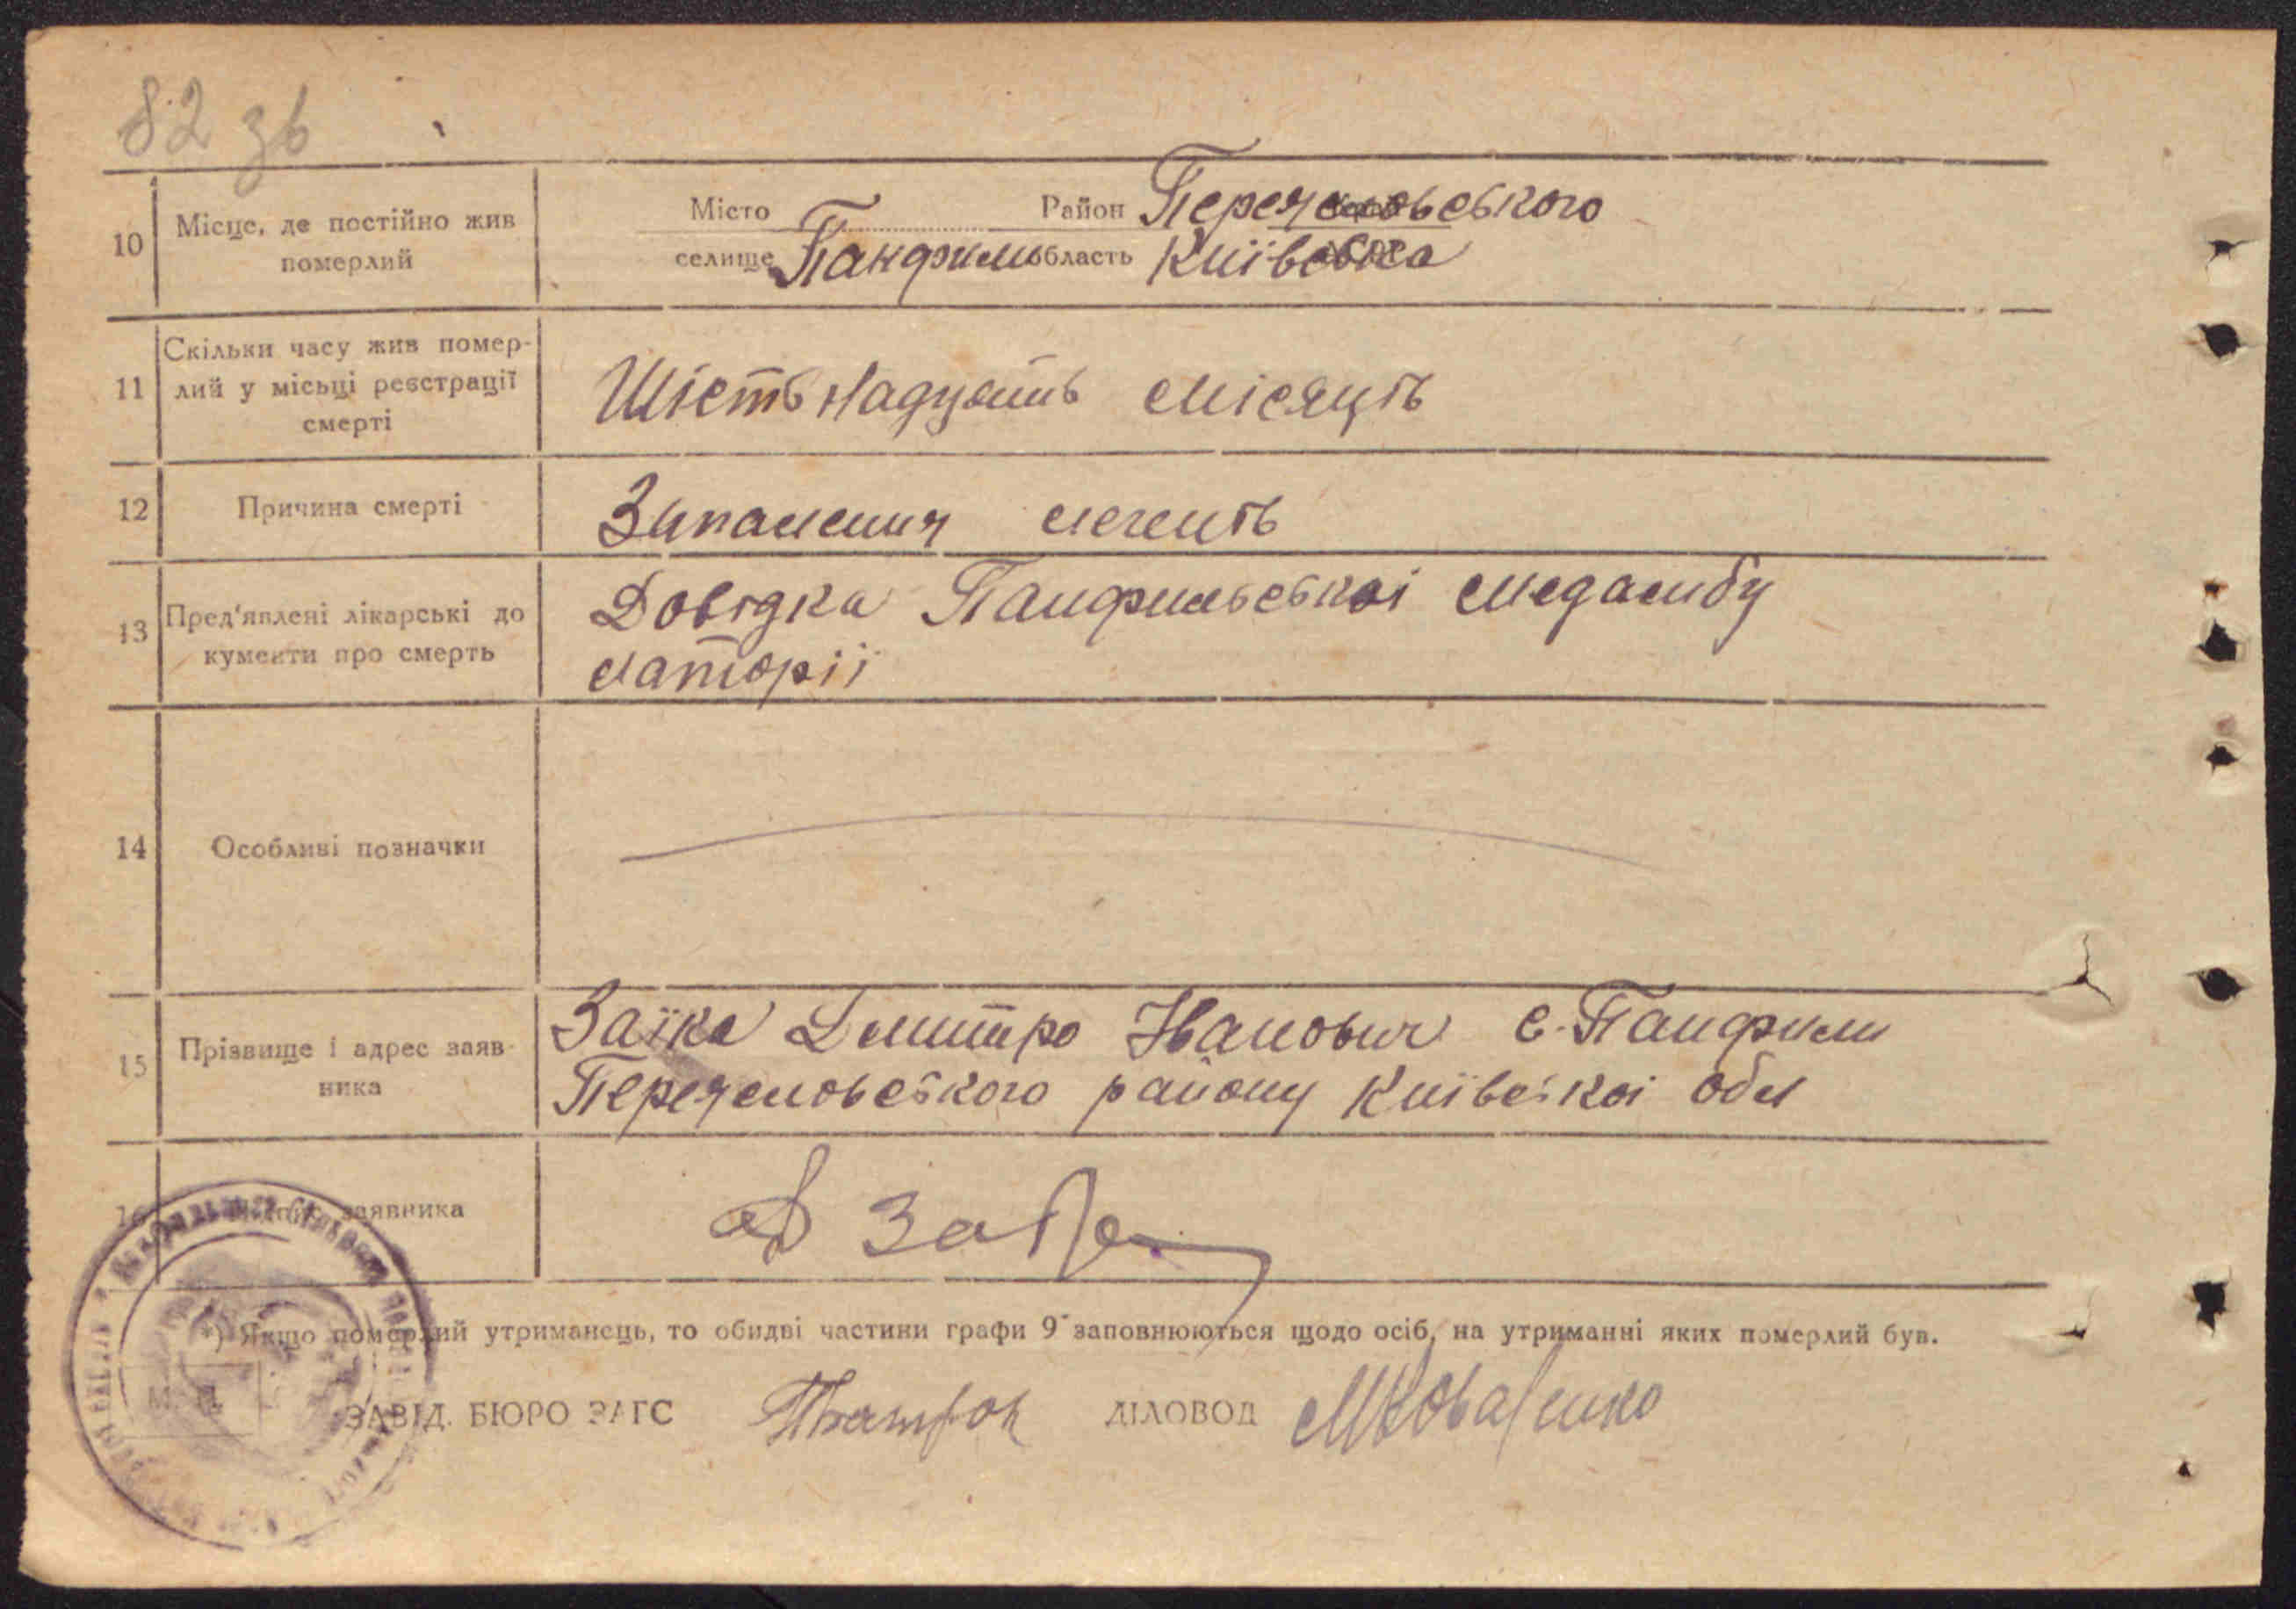 82 зв
10 Місце, де постійно жив померлий
Місто Район Переяславського
селище Панфили область Київська
11 Скільки часу жив помер-
лий у місьці реєстрації
смерті
Шістьнадцять місяців
12 Причина смерті Запалення легенів
13 Пред'явлені лікарські до
кументи про смерть
Довідка Панфильської медамбу
латорії
14 Особливі позначки
15 Прізвище і адрес заяв-
ника
Заїка Дмитро Іванович с. Панфили
району Київської обл
16 заявника
*) Якщо померлий утриманець, то обидві частини графи 9 заповнюються щодо осіб, на утриманні яких померлий був.
М. П.
ЗАВІД. БЮРО ЗАГС ДІЛОВОД МКоваленко